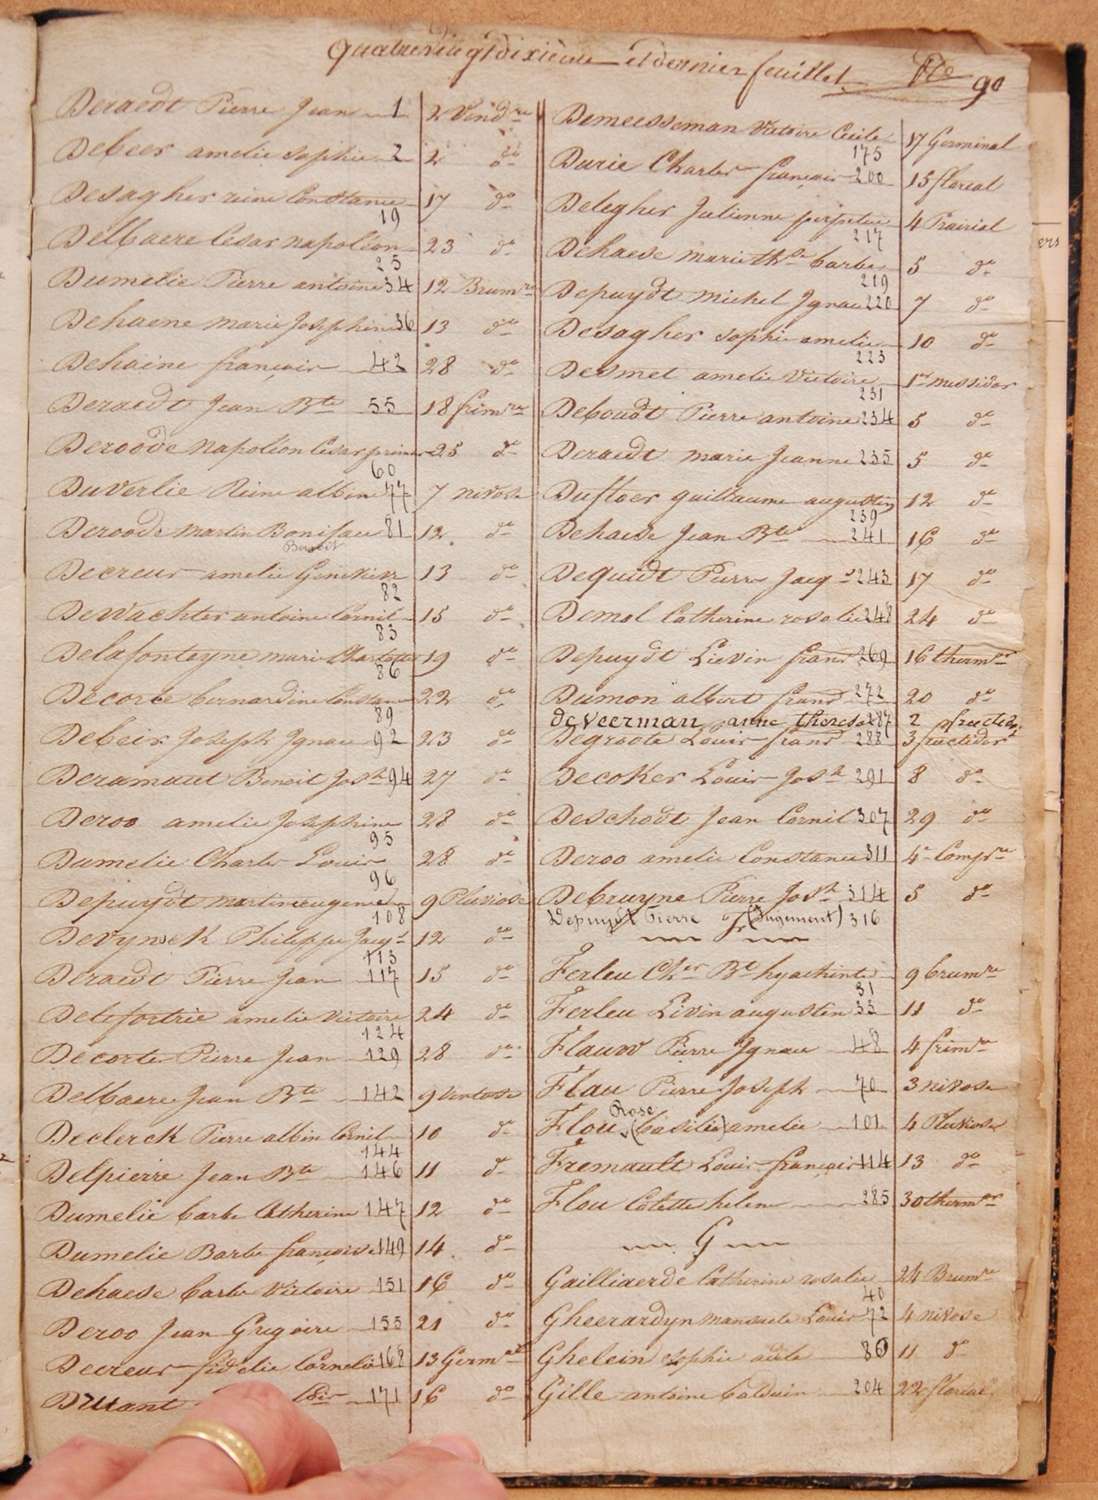 quatrevingt dixième et dernier feuillet
90
Deraedt Pierre Jean 1 2 Vend.re
Debeer amelie sophie 2 2 do
Desagher reine Constance 19 17 do
Delbaere Cesar napoléon 25 23 do
Dumelie Pierre antoine 34 12 Brum.re
Dehaene marie Josephine 36 13 do
Dehaine françois 42 28 do
Deraedt Jean Bte 55 18 frim.re
Deroode Napoléon Cesar 60 25 do
Duverlie Reine albine 77 7 nivose
Deroode martin Boniface 81 12 do
Benoit
Decreur amelie Genevieve 82 13 do
Dewachter antoine Cornil 83 15 do
Delafonteyne marie Charlotte 86 19 do
Decorte bernardine Constance 89 22 do
Debeir Joseph Ignace 92 23 do
Deramaut Benoit Josh 94 27 do
Deroo amelie Josephine 95 28 do
Dumelie Charles Louis 96 28 do
Depuydt martin eugene 108 9 Pluviose
Devynsck Philippe Jacqs 113 12 do
Deraedt Pierre Jean 117 15 do
Delefortrie amelie victoire 124 24 do
Decorte Pierre Jean 129 28 do
Delbaere Jean Bte 142 9 ventose
Declerck Pierre albin Cornil 144 10 do
Delpierre Jean Bte 146 11 do
Dumelie barbe Catherine 147 12 do
Dumelie Barbe françoise 149 14 do
Dehaese barbe Victoire 151 16 do
Deroo Jean Gregoire 155 21 do
Decreur fidelie Cornelie 168 13 Germ.al
171 16 do
Demeesseman Victoire Cecile 175 17 Germinal
Durie Charles françois 200 15 floreal
Delegher Julienne perpetue 217 4 Prairial
Dehaese marie thse barbe 219 5 do
Depuydt michel Ignace 220 7 do
Desagher sophie amelie 223 10 do
Desmet amelie Victoire 231 1er messidor
Deboudt Pierre antoine 234 5 do
Deraedt marie Jeanne 235 5 do
Dufloer guillaume augustin 239 12 do
Dehaese Jean Bte 241 16 do
Dequidt Pierre Jacqs 243 17 do
Demol Catherine rosalie 248 24 do
Depuydt Lievin frans 269 16 therm.or
Dumon albert frans 272 20 do
deveerman anne theresa 287 2 fructidor
Degroote Louis frans 288 3 fructidor
Decoker Louis Josh 291 8 do
Deschodt Jean Cornil 307 29 do
Deroo amelie Constance 311 4e Comp.re
Debruyne Pierre Josh 314 5 do
Depuydt Pierre Jr (Jugement) 316
Ferleu Cher Bte hyachinte 31 9 brum.re
Ferleu Livin augustin 33 11 do
Flauw Pierre Ignace 48 4 frim.re
Flau Pierre Joseph 70 3 nivose
Rose
Flou (basilie) amelie 101 4 Pluviose
Fremault Louis françois 114 13 do
Flou Colette helene 285 30 therm.or
G
Gailliaerde Catherine rosalie 40 24 Brum.re
Gheerardyn mansuete Louis 72 4 nivose
Ghelein sophie adele 80 11 do
Gille antoine balduin 204 22 floreal